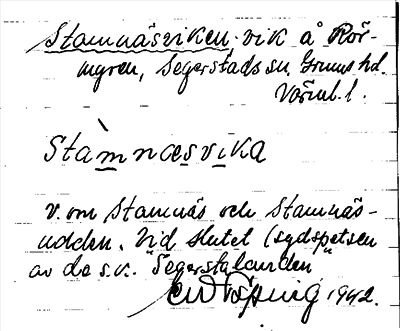 Stamnäsviken, vik å Rör-
myren, Segerstads sn, Grums hd.
Värml. l.
Stàmnæsvika
v. om Stamnäs och Stamnäs-
udden. Vid slutet (sydspetsen
av da s.k. "Segerstalanden"
1942.